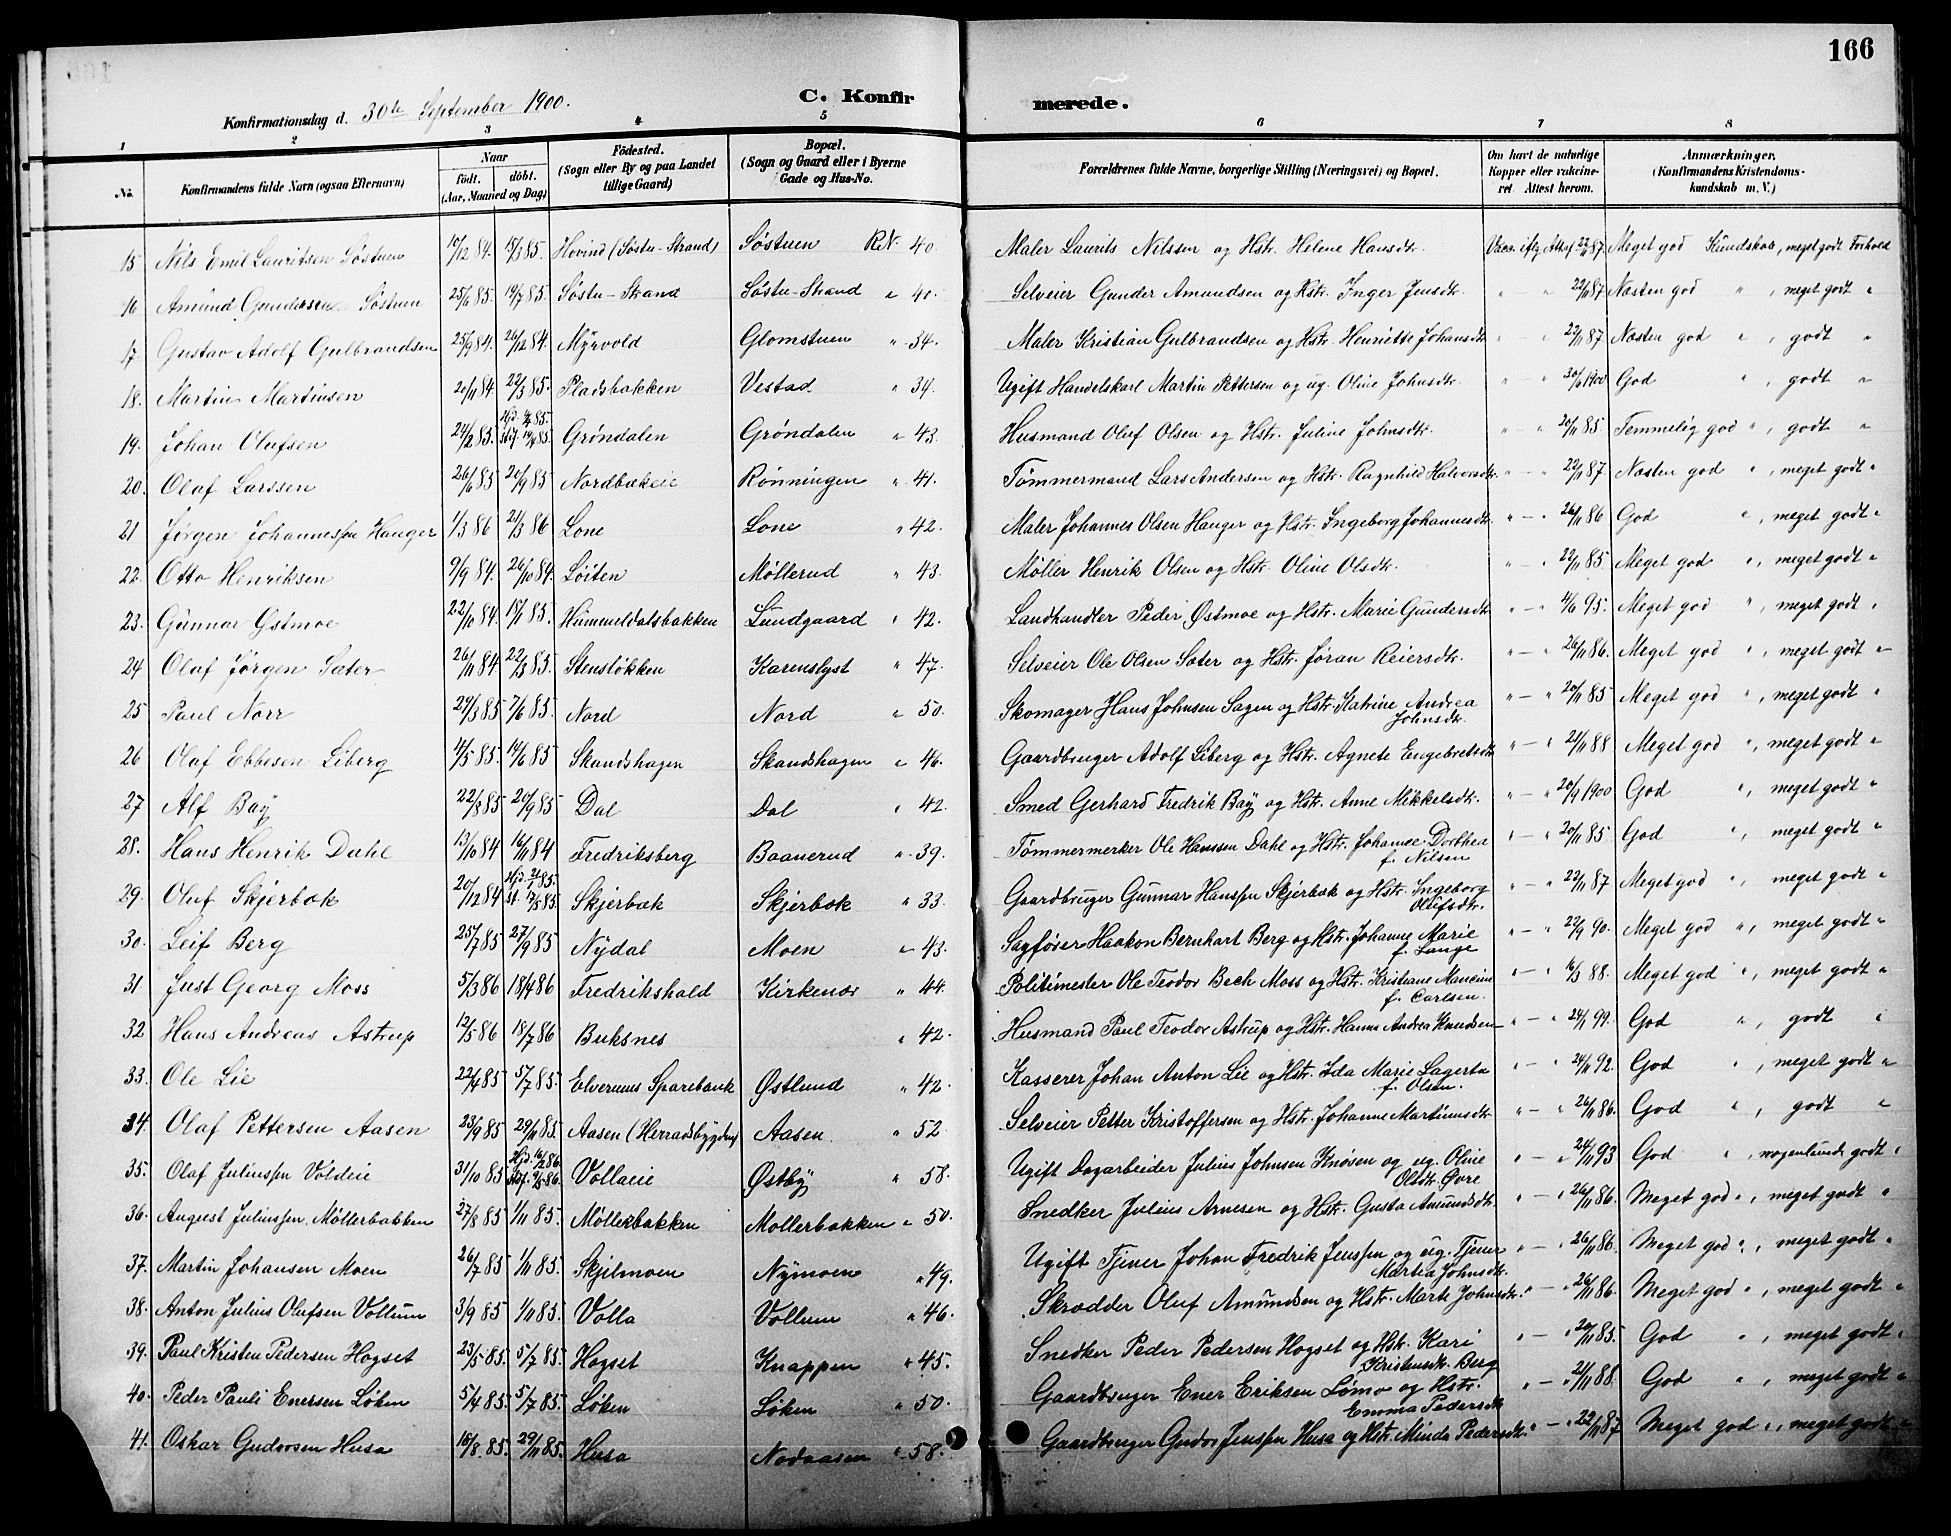 166
Konfirmationsdag d. 30te September 1900.
C. Konfirmerede.
1 2 3 4 5 6 7 8
No. Konfirmandens fulde Navn (ogsaa Efternavn) Naar födt. döbt. (Aar, Maaned og Dag) Födested. (Sogn eller By og paa Landet tillige Gaard) Bopæl. (Sogn og Gaard eller i Byerne Gade og Hus-No. Forældrenes fulde Navne, borgerlige Stilling (Næringsvei) og Bopæl. Om havt de naturlige Kopper eller vakcineret. Attest herom. Anmærkninger. (Konfirmandens Kristendomskundskab m. V.)
15 Nils Emil Lauritsen Søstuen 10/12 84. 15/3 85. Hovind (Søstu-Strand) Søstuen R.N. 40. Maler Laurits Nilssen og Hstr. Helene Hansdtr. Vacc. iflg Attest 22/11 87. Meget god Kundskab, meget godt Forhold
16 Amund Gundersen Søstuen 25/6 85. 19/7 85. Søstu-Strand Søstu-Strand " 41. Selveier Gunder Amundsen og Hstr. Inger Jensdtr. " " 22/11 87 Næsten god " , meget godt "
17. Gustav Adolf Gulbrandsen 25/9 84. 26/12 84. Myrvold Glomstuen " 34. Maler Kristian Gulbrandsen og Hstr. Henriette Johansdtr. " " 22/11 87 Næsten god " , godt "
18. Martin Martinsen 20/11 84. 22/3 85. Pladsbakken Vestad " 34. Ugift Handelskarl Martin Pettersen og ug. Oline Johnsdtr. " " 30/6 1900 God " , godt "
19. Johan Olufsen 24/2 85. Grøndalen Grøndalen " 43. Husmand Oluf Olsen og Hstr. Juline Johnsdtr. " " 20/11 85. Temmelig god " , godt "
20. Olaf Larssen 26/6 85 20/9 85 Nordbækeie Rønningen " 41. Tømmermand Lars Andersen og Hstr. Ragnhild Halvorsdtr. " " 22/11 87 Næsten god " , meget godt "
21 Jørgen Johannessen Hanger 1/3 86 21/3 86 Lone Lone " 42. Maler Johannes Olsen Hanger og Hstr. Ingeborg Johannesdtr. " " 26/11 86 God " , meget godt "
22. Otto Henriksen 9/9 84. 26/10 84. Løiten Møllerud " 43. Møller Henrik Olsen og Hstr. Oline Olsdtr. " " 22/11 85 Meget god " , meget godt "
23. Gunnar Østmoe 22/10 84. 18/1 85. Hummeldalsbakken Lundgaard " 42. Landhandler Peder Østmoe og Hstr. Marie Gundersdtr. " " 4/6 95. Meget god " , meget godt "
24 Olaf Jørgen Sæter 26/11 84 22/3 85. Stensløkken Karenslyst " 47. Selveier Ole Olsen Sæter og Hstr. Jøran Reiersdtr. " " 26/11 86. Meget god " , meget godt "
25 Paul Norr 29/3 85 7/6 85. Nord Nord " 50. Skomager Hans Johnsen Sagen og Hstr. Katrine Andrea Johnsdtr. " " 20/11 85 Meget god " , meget godt "
26 Olaf Ebbesen Liberg 4/5 85. 14/6 85 Skandshagen Skandshagen " 46. Gaardbruger Adolf Liberg og Hstr. Agnete Engebretsdtr " " 21/11 88 Meget god " , meget godt "
27 Alf Bay 22/8 85 20/9 85 Dal Dal " 42. Smed Gerhard Fredrik Bay og Hstr. Anne Mikkelsdtr. " " 20/9 1900 God " , meget godt "
28. Hans Henrik Dahl 13/10 84 16/11 84 Fredriksberg Baanerud " 39. Tømmermerker Ole Hanssen Dahl og Hstr. Johanne Dorthea f. Nilsen " " 20/11 85 God " , meget godt "
29. Oluf Skjerbæk 20/12 84 Skjerbæk Skjerbæk " 33. Gaardbruger Gunnar Hanssen Skjerbæk og Hstr. Ingeborg Olufsdtr. " " 22/11 87 Meget god " , meget godt "
30. Leif Berg 25/7 85 27/9 85 Nydal Moen " 43. Sagfører Haakon Bernhart Berg og Hstr. Johanne Marie f. Lange " " 22/9 90. Meget god " , meget godt "
31. Just Georg Moss 5/3 86 18/4 86 Fredrikshald Kirkenær " 44. Politimester Ole Teodor Bech Moss og Hstr. Kristiane f. Carlsen. " " 16/3 88. Meget god " , meget godt "
32 Hans Andreas Astrup 12/5 86 18/7 86 Buksnes " 42. Husmand Paul Teodor Astrup og Hstr. Hanna Andrea Knudsen " " 24/1 99. God " , godt "
33. Ole Lie 22/4 85 5/7 85. Elverums Sparebank Østlund " 42. Kasserer Johan Anton Lie og Hstr. Ida Marie Lagerta f. Olsen. " " 24/11 92. God " , meget godt "
34. Olaf Pettersen Aasen 23/9 85 29/11 85. Aasen (Herradsbygden) Aasen " 52. Selveier Petter Kristoffersen og Hstr. Johanne Martinusdtr. " " 26/11 86. God " , godt "
35. Olaf Juliussen Voldeie 31/10 85 Vollaeie Østby " 58. Ugift Dagarbeider Julius Johnsen Knøsen og ug. Oline Olsdtr. Øvre " " 24/11 93 God " , nogenlunde godt "
36. August Juliussen Møllerbakken 27/8 85 1/11 85. Møllerbakken Møllerbakken " 50. Snedker Julius Arnesen og Hstr. Gusta Amundsdtr. " " 26/11 86. Meget god " , meget godt "
37. Martin Johansen Moen 26/7 85 1/11 85. Skjilmoen Nymoen " 49. Ugift Tjener Johan Fredrik Jenssen og ug. Tjener Martea Johnsdtr. " " 26/11 86. Meget god " , meget godt "
38. Anton Julius Olufsen Vollum 3/9 85 1/11 85. Volla Vollum " 46. Skrædder Oluf Amundsen og Hstr. Marte Johnsdtr. " " 26/11 86. Meget god " , meget godt "
39. Paul Kristen Pedersen Hogset 23/5 85. 5/7 85. Hogset Knappen " 45. Snedker Peder Pedersen Hogset og Hstr. Kari Kristensdtr. Berg " " 20/11 85. God " , meget godt "
40. Peder Pauli Enersen Løken 5/4 85. 5/7 85. Løken Løken " 50. Gaardbruger Ener Eriksen Lømo og Hstr. Emma Pedersdtr " " 21/11 88. God " , meget godt "
41. Oskar Gudorsen Husa 18/8. 85. 29/11 85. Husa Nordaasen " 58. Gaardbruger Gudor Jenssen Husa og Hstr. Minda Pedersdtr. " " 22/11 87 Meget god " , meget godt "